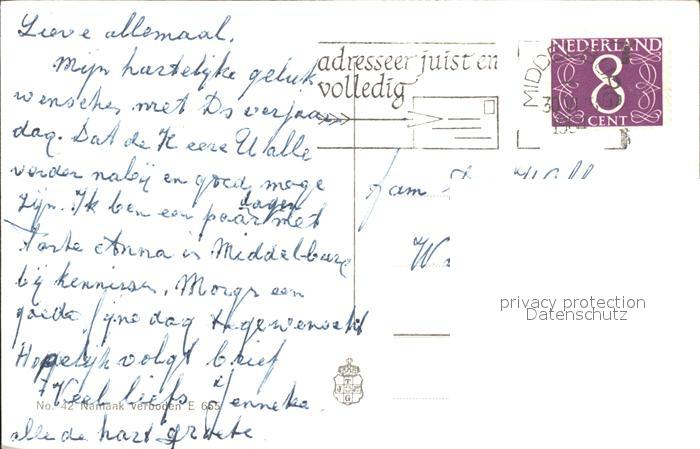 Lieve allemaal.
Mijn hartelijke geluk
wenschen met Ds verjaar
dag. Dat de H eere U alle
verder nabij en goed moge
dagen
zijn. Ik ben een paar met
Tante Anna in Middelburg
bij kennissen. Morge een
goede fijne dag toegewenscht
Hopelijk volgt brief
Veel liefs Jenneke
alle de hart groete
No. 42 Namaak verboden E 655
adresseer juist en
volledig
MIDDE
NEDERLAND
8
CENT
Fam
W
privacy protection
Datenschutz